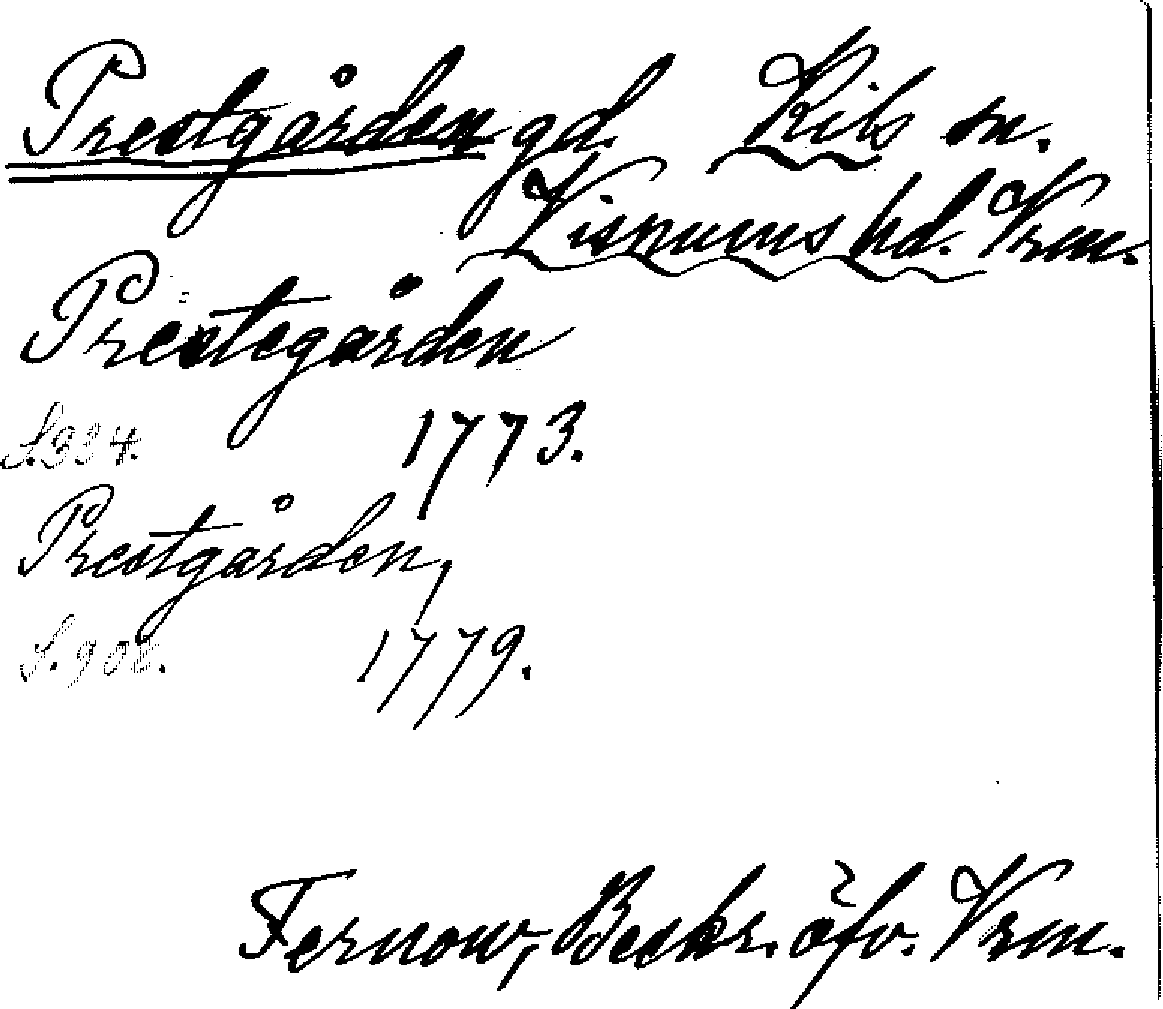 Prestgården gd. Kils sn.
Visnums hd. Vrm.
Prestegården
S. 334. 1773.
Prestgården,
S. 908. 1779.
Fernow, Beskr. öfv. Vrm.